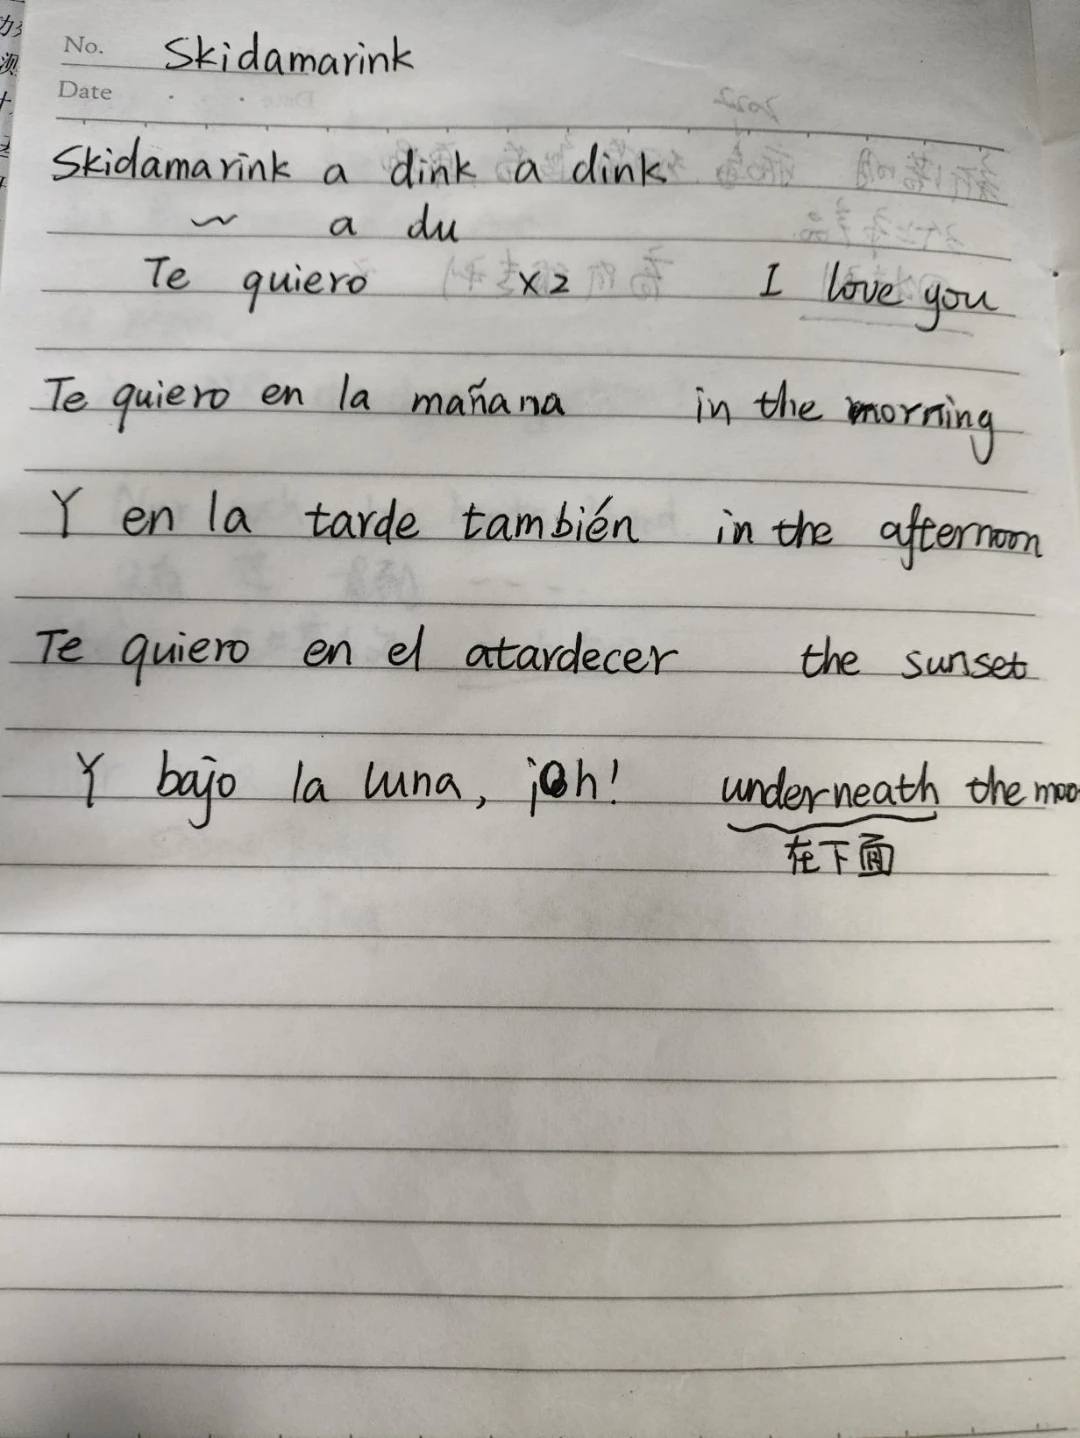 No. Skidamarink
Date
Skidamarink a dink a dink
~ a du
Te quiero x2 I love you
Te quiero en la mañana in the morning
Y en la tarde también in the afternoon
Te quiero en el atardecer the sunset
Y bajo la luna, ¡Oh! underneath the moo
在下面